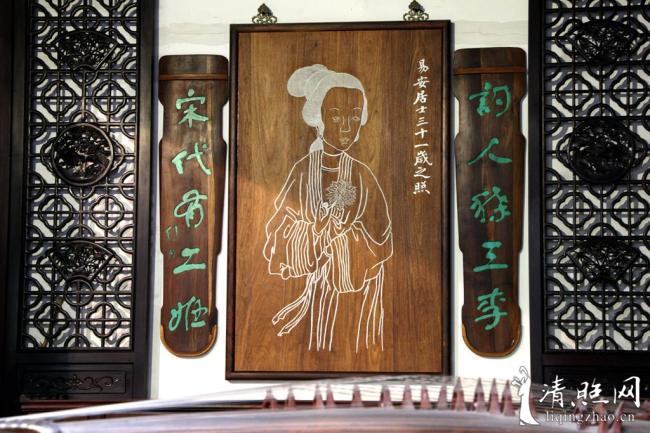 詞人三李
易安居士三十一歲之照
宋代有
清照网
liqingzhao.cn